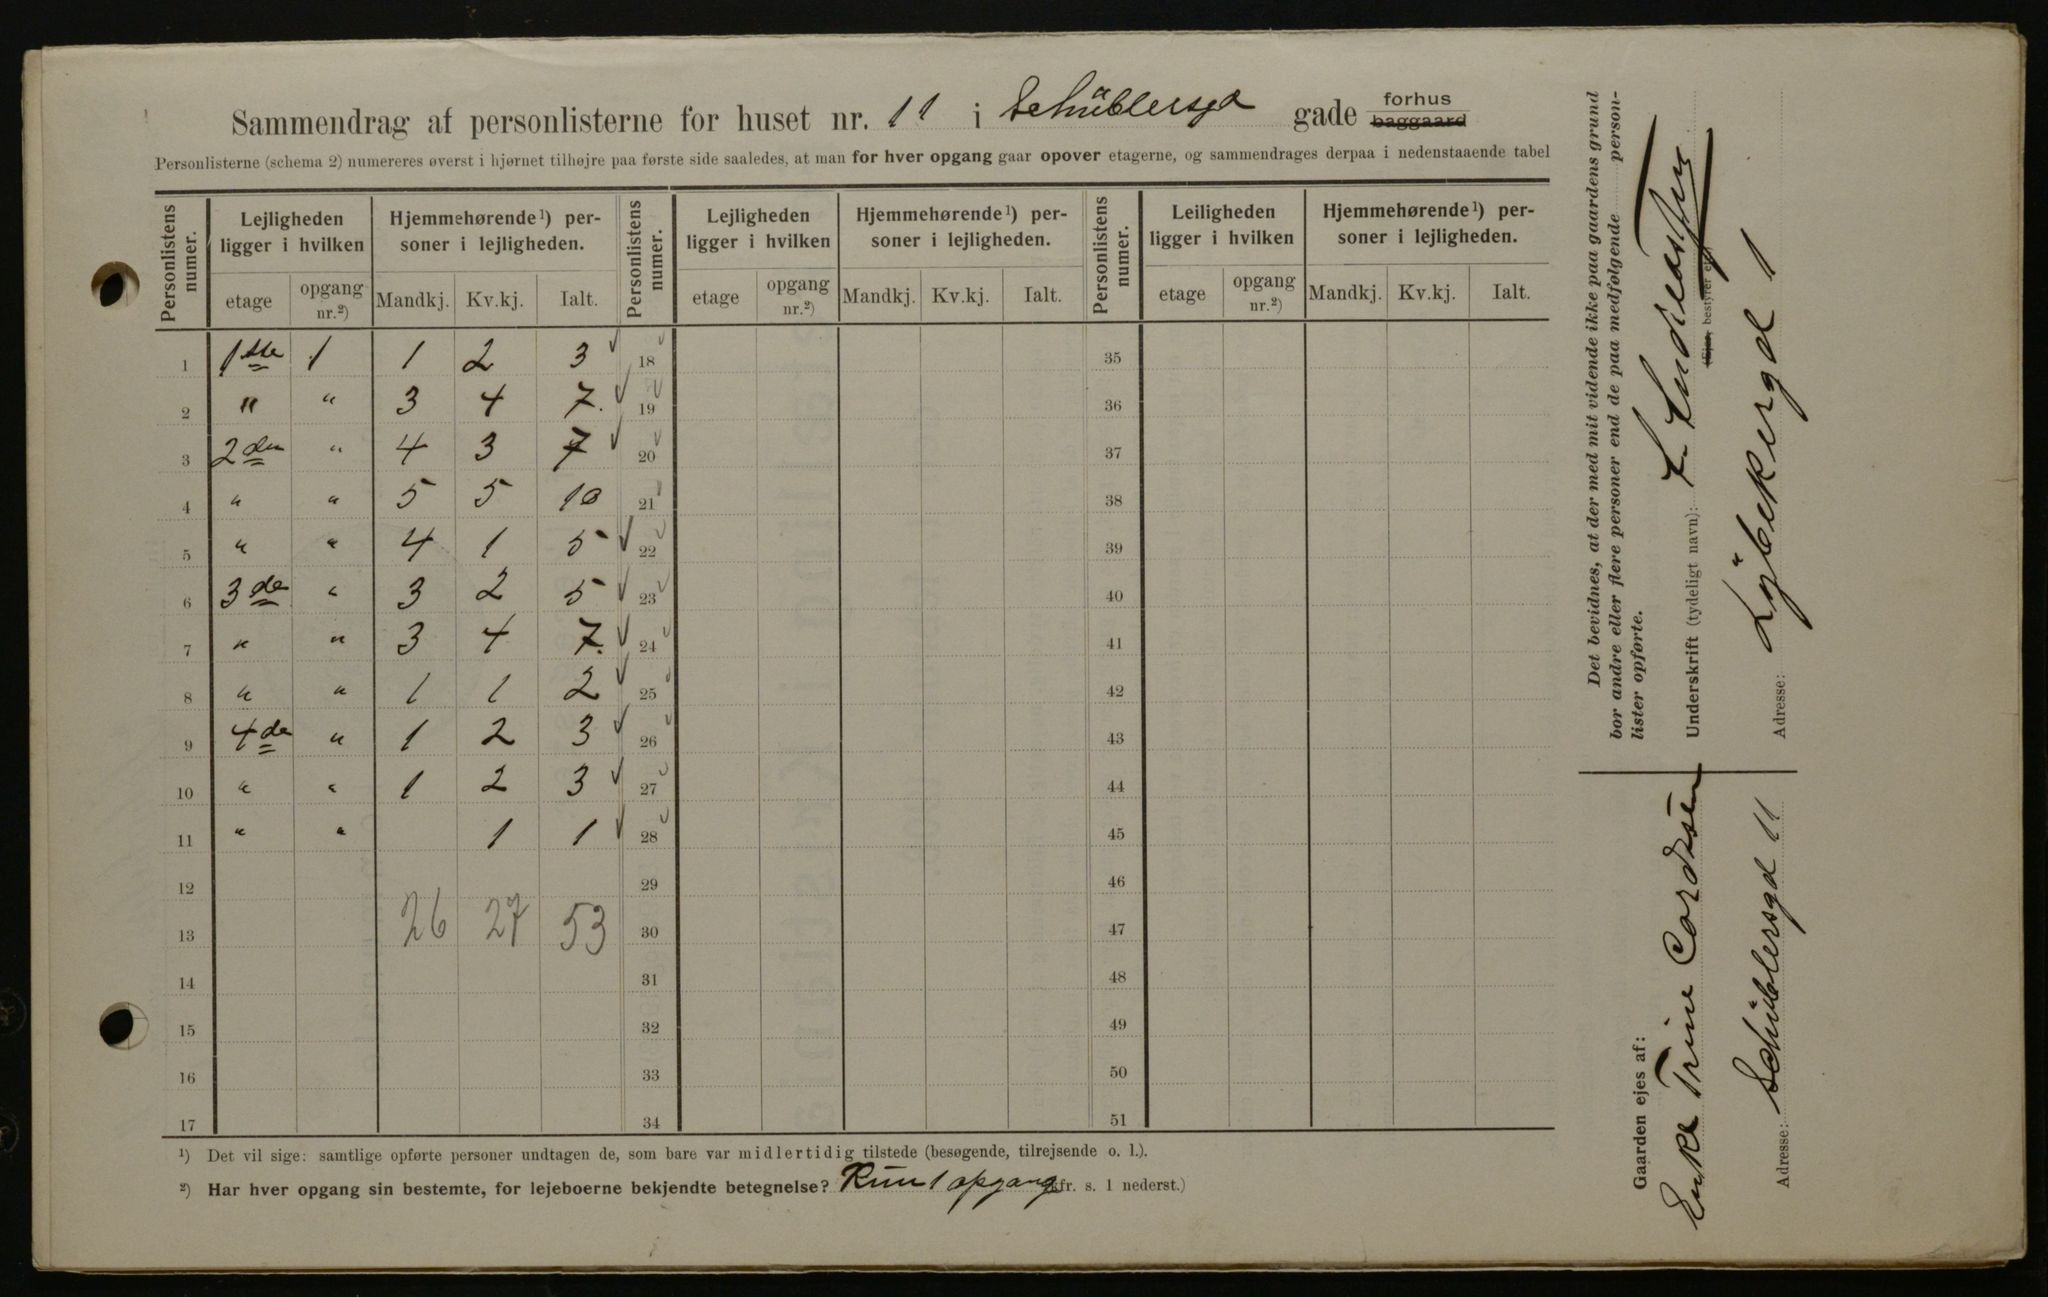 Sammendrag af personlisterne for huset nr. 11 i Schüblersgd gade forhus baggaard
Personlisterne (schema 2) numereres øverst i hjørnet tilhøjre paa første side saaledes, at man for hver opgang gaar opover etagerne, og sammendrages derpaa i nedenstaaende tabel
Personlistens numer. Lejligheden ligger i hvilken Hjemmehørende ¹) personer i lejligheden. Personlistens numer. Lejligheden ligger i hvilken Hjemmehørende ¹) personer i lejligheden. Personlistens numer. Leiligheden ligger i hvilken Hjemmehørende ¹) personer i lejligheden.
etage opgang nr.²) Mandkj. Kv.kj. Ialt. etage opgang nr.²) Mandkj. Kv.kj. Ialt. etage opgang nr.²) Mandkj. Kv.kj. Ialt.
1 1ste 1 1 2 3 18 35
2 " " 3 4 7. 19 36
3 2den " 4 3 7 20 37
4 " " 5 5 10 21 38
5 " " 4 1 5 22 39
6 3de " 3 2 5 23 40
7 " " 3 4 7. 24 41
8 " " 1 1 2 25 42
9 4de " 1 2 3 26 43
10 " " 1 2 3 27 44
11 " " 1 1 28 45
12 29 46
13 26 27 53 30 47
14 31 48
15 32 49
16 33 50
17 34 51
¹) Det vil sige: samtlige opførte personer undtagen de, som bare var midlertidig tilstede (besøgende, tilrejsende o. l.).
²) Har hver opgang sin bestemte, for lejeboerne bekjendte betegnelse? Kun 1 opgang (kfr. s. 1 nederst.)
Det bevidnes, at der med mit vidende ikke paa gaardens grund
bor andre eller flere personer end de paa medfølgende personlister opførte.
Underskrift (tydeligt navn):
(Ejer, bestyrer etc.)
Adresse: Lybekergd 1
Gaarden ejes af:
Enke Trine Cordtsen
Adresse: Schüblersgd 11